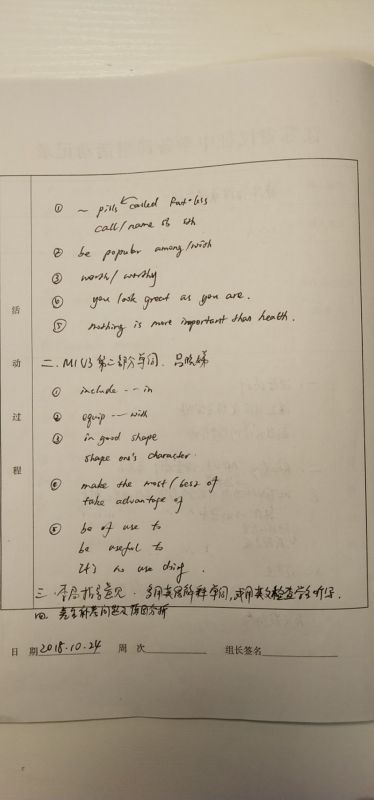 ① ~ pills called Fat-less
call/name sb sth
② be popular among/with
③ worth/worthy
④ you look great as you are.
⑤ nothing is more important than health.
二. M1U3 第二部分单词.
① include --- in
② equip --- with
③ in good shape
shape one's character.
④ make the most/best of
take advantage of
⑤ be of use to
be useful to
It's no use doing.
三. 指导意见. 多用英语解释单词, 或用英文检查学生听写.
四. 问题及原因分析
活动过程
日 期 2018.10.24 周 次 组长签名